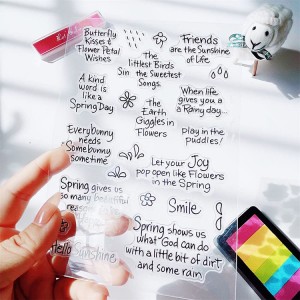 Butterfly
Kisses &
Flower Petal
Wishes
Friends
are the Sunshine
of Life.
The
littlest Birds
Sin the Sweetest
Songs.
A kind
word is
like a
Spring Day
The
Earth
Giggles in
Flowers
When life
gives you a
a Rainy day...
play in the
puddles!
Everybunny
needs
Somebunny
sometime
Let your Joy
pop open like Flowers
in the Spring
Spring gives us
so many beautiful
reasons
Smile
Hello Sunshine
Spring shows us
what God can do
with a little bit of dirt
and some rain